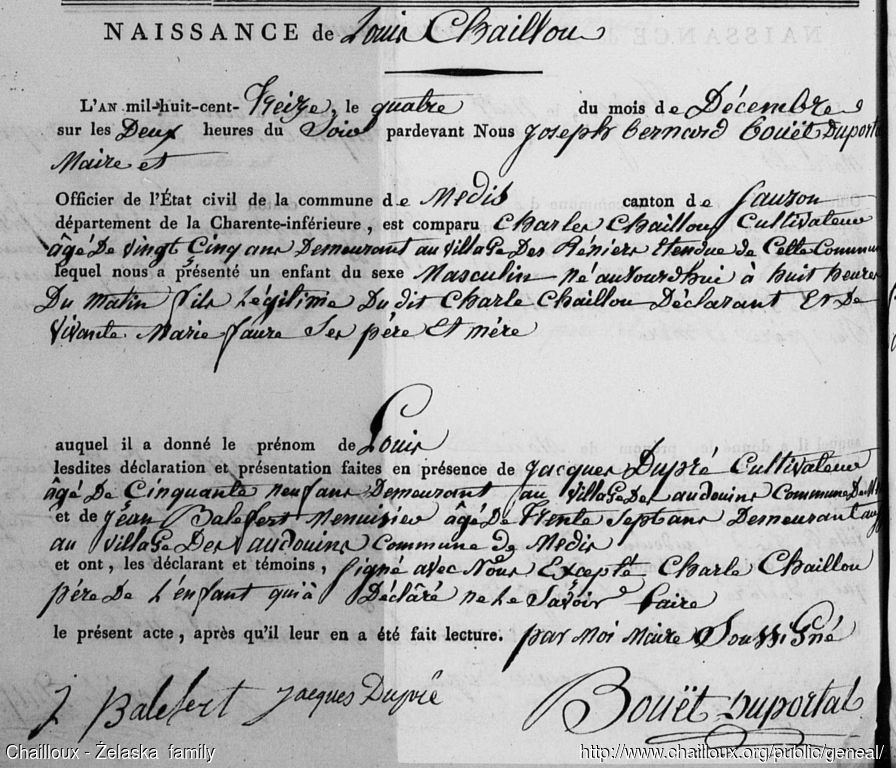 NAISSANCE de Louis Chaillou
L'AN mil-huit-cent- Treize, le quatre du mois de Décembre
sur les Deux heures du Soir pardevant Nous Joseph bernard Bouët Duportal
Maire et
Officier de l'État civil de la commune de Medis canton de Saujon
département de la Charente-inférieure, est comparu Charles Chaillou Cultivateur
âgé De vingt Cinq ans Demeurant au village Des Réniers Etendue de Cette Commune
lequel nous a présenté un enfant du sexe Masculin né aujourdhui à huit heures
Du Matin fils Légitime Du dit Charle Chaillou Déclarant Et De
vivante Marie faure Ses père Et mère
auquel il a donné le prénom de Louis
lesdites déclaration et présentation faites en présence de Jacques Dupré Cultivateur
âgé De Cinquante neuf ans Demeurant au village Des audouins Commune De
et de Jean Balefert Menuisier âgé De trente Sept ans Demeurant
au village Des audouins Commune de Medis
et ont, les déclarant et témoins, Signé avec Nous Excepté Charle Chaillou
père De L'enfant qui à Déclâré ne Le Savoir faire
le présent acte, après qu'il leur en a été fait lecture. par Moi Maire Soussigné
J Balefert Jacques Dupré Bouët Duportal
Chailloux - Želaska family http://www.chailloux.org/public/geneal/